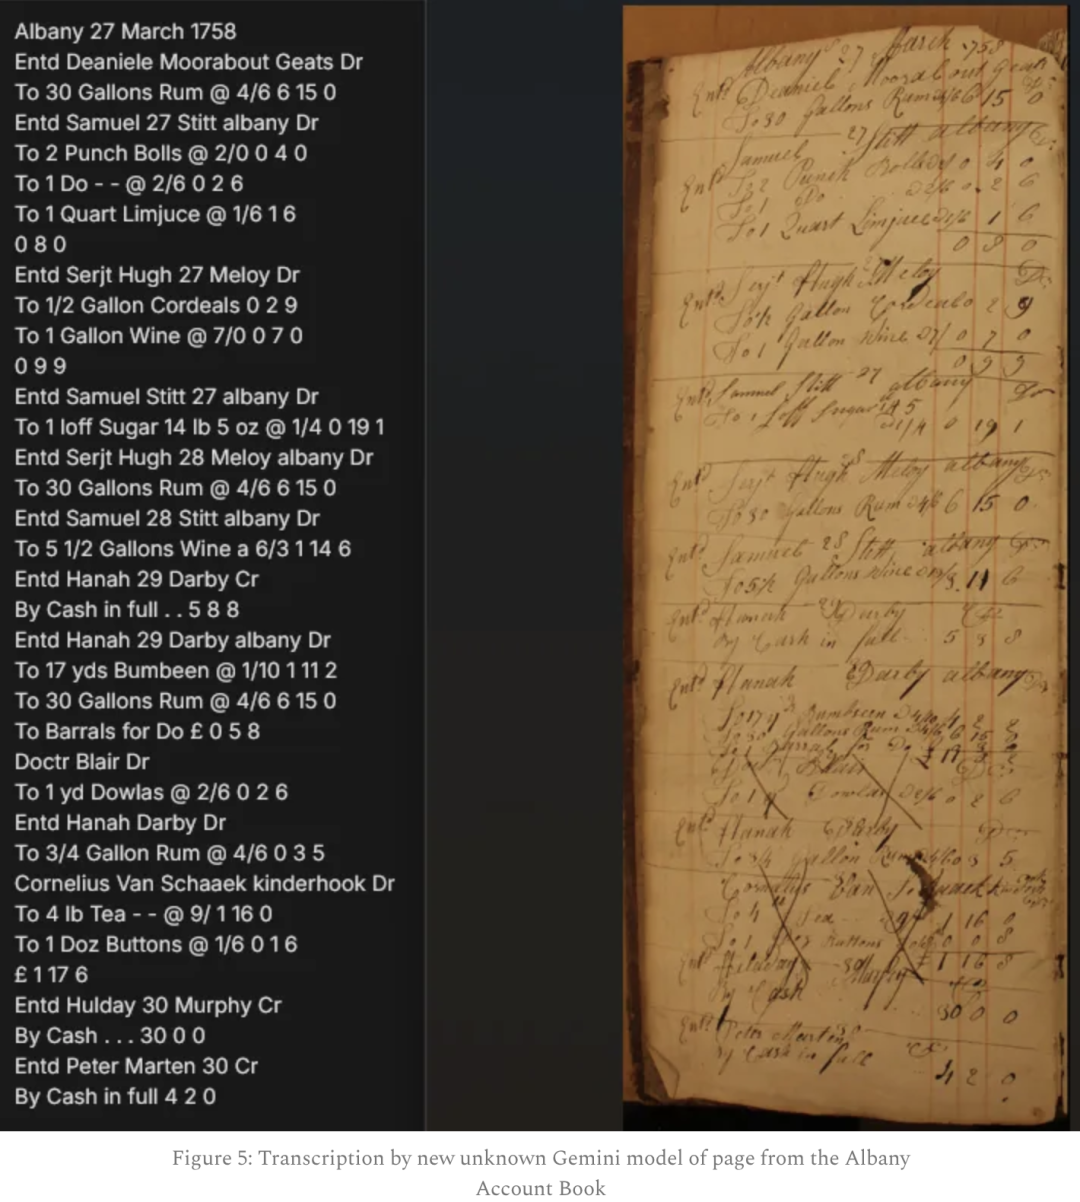 Albany 27 March 1758
Entd Deaniele Moorabout Geats Dr
To 30 Gallons Rum @ 4/6 6 15 0
Entd Samuel 27 Stitt albany Dr
To 2 Punch Bolls @ 2/0 0 4 0
To 1 Do - - @ 2/6 0 2 6
To 1 Quart Limjuce @ 1/6 1 6
0 8 0
Entd Serjt Hugh 27 Meloy Dr
To 1/2 Gallon Cordeals 0 2 9
To 1 Gallon Wine @ 7/0 0 7 0
0 9 9
Entd Samuel Stitt 27 albany Dr
To 1 loff Sugar 14 lb 5 oz @ 1/4 0 19 1
Entd Serjt Hugh 28 Meloy albany Dr
To 30 Gallons Rum @ 4/6 6 15 0
Entd Samuel 28 Stitt albany Dr
To 5 1/2 Gallons Wine a 6/3 1 14 6
Entd Hanah 29 Darby Cr
By Cash in full . . 5 8 8
Entd Hanah 29 Darby albany Dr
To 17 yds Bumbeen @ 1/10 1 11 2
To 30 Gallons Rum @ 4/6 6 15 0
To Barrals for Do £ 0 5 8
Doctr Blair Dr
To 1 yd Dowlas @ 2/6 0 2 6
Entd Hanah Darby Dr
To 3/4 Gallon Rum @ 4/6 0 3 5
Cornelius Van Schaaek kinderhook Dr
To 4 lb Tea - - @ 9/ 1 16 0
To 1 Doz Buttons @ 1/6 0 1 6
£ 1 17 6
Entd Hulday 30 Murphy Cr
By Cash . . . 30 0 0
Entd Peter Marten 30 Cr
By Cash in full 4 2 0
Albany 27 March 1758
Entd Deaniel Moorabout Geats
To 30 Gallons Rum @ 4/6 6 15 0
Samuel 27 Stitt albany Dr
Entd To 2 Punch Bolls 0 4 0
To 1 Do @ 2/6 0 2 6
To 1 Quart Limjuce @ 1/6 1 6
0 8 0
Entd Serjt Hugh Meloy Dr
To 1/2 Gallon Cordeals 0 2 9
To 1 Gallon Wine @ 7/ 0 7 0
0 9 9
Entd Samuel Stitt 27 albany Dr
To 1 Loff Sugar 14 5
@ 1/4 0 19 1
Entd Serjt Hugh 28 Meloy albany Dr
To 30 Gallons Rum @ 4/6 6 15 0
Entd Samuel 28 Stitt albany Dr
To 5 1/2 Gallons Wine 3 11 6
Entd Hanah 29 Darby Cr
By Cash in full 5 8 8
Entd Hanah Darby albany Dr
To 17 yds
To 30 Gallons Rum 6 15
To 1 Barral for Do
Blair Dr
To 1 y Dowlas @ 2/6 0 2 6
Entd Hanah Darby Dr
To 3/4 Gallon Rum @ 4/6 0 3 5
Cornelius Van
To 4 Tea 9/ 1 16 0
To 1 Doz Buttons 0 0 8
£ 1 16 8
Entd Hulday 30 Murphy
By Cash
30 0 0
Entd Peter Marten 30
By Cash in full Cr
4 2 0
Figure 5: Transcription by new unknown Gemini model of page from the Albany
Account Book